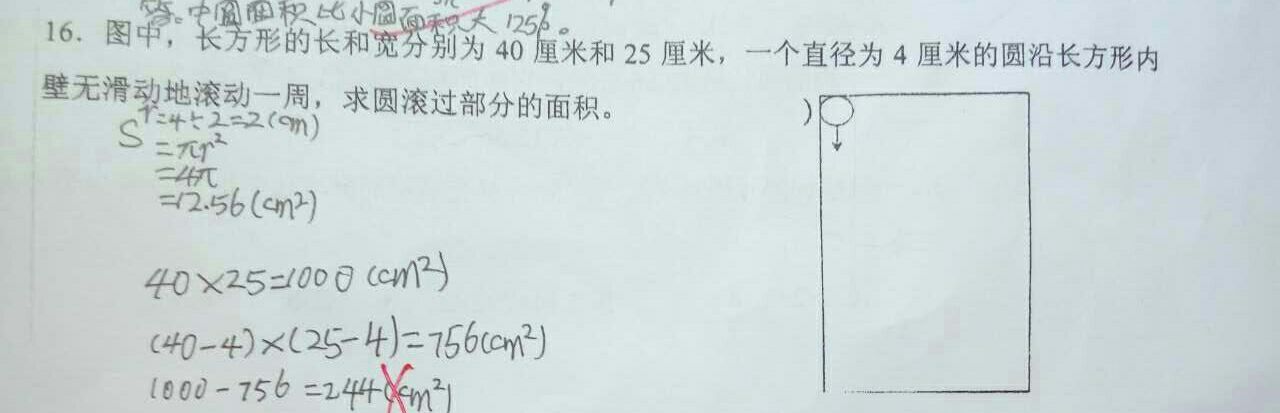 答：中圆面积比小圆面积大125%。
16．图中，长方形的长和宽分别为 40 厘米和 25 厘米，一个直径为 4 厘米的圆沿长方形内
壁无滑动地滚动一周，求圆滚过部分的面积。
r=4÷2=2(cm)
)
S=πr²
=4π
=12.56(cm²)
40×25=1000(cm²)
(40-4)×(25-4)=756(cm²)
1000-756=244(cm²)